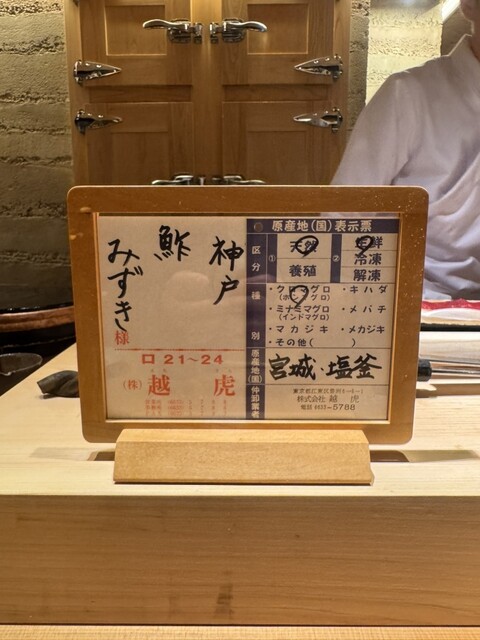 神戸
鮓
みずき様
口 21〜24
(株) 越虎
原産地(国)表示票
区分
① 天然
養殖
② 生鮮
冷凍
解凍
種別
・クロマグロ
(ホンマグロ)
・キハダ
・ミナミマグロ
(インドマグロ)
・メバチ
・マカジキ
・メカジキ
・その他( )
原産地(国)
宮城・塩釜
仲卸業者
株式会社 越虎
電話 6633-5788